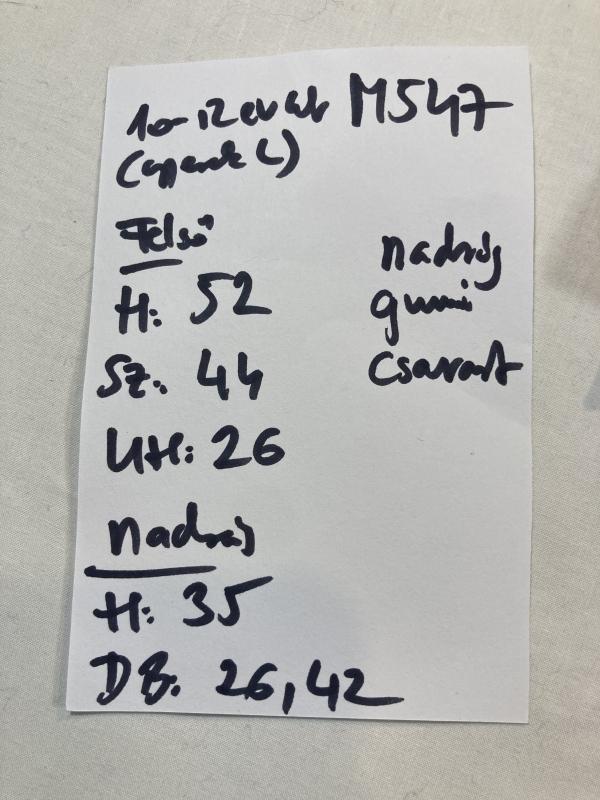 10-12 évest M547
(gyerek L)
Felső
H: 52
Sz: 44
UH: 26
nadrág
gumi
csavart
Nadrág
H: 35
DB: 26,42